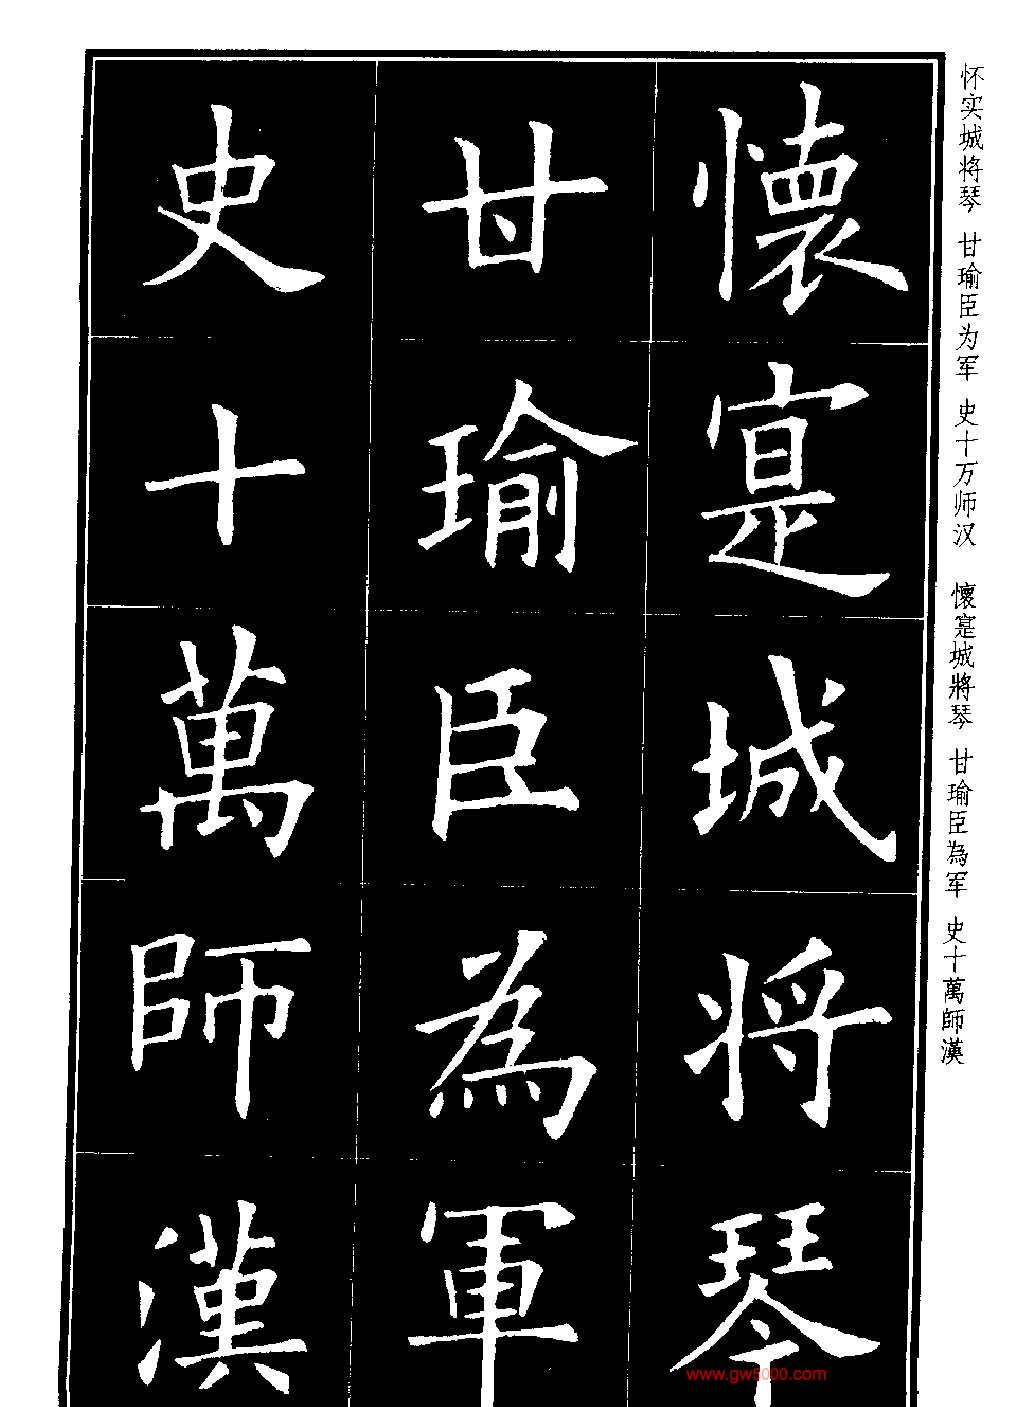 怀实城将琴 甘瑜臣为军 史十万师汉 懷寔城將琴 甘瑜臣為军 史十萬師漢
懷寔城将琴
甘瑜臣為軍
史十萬師漢
www.gw5000.com